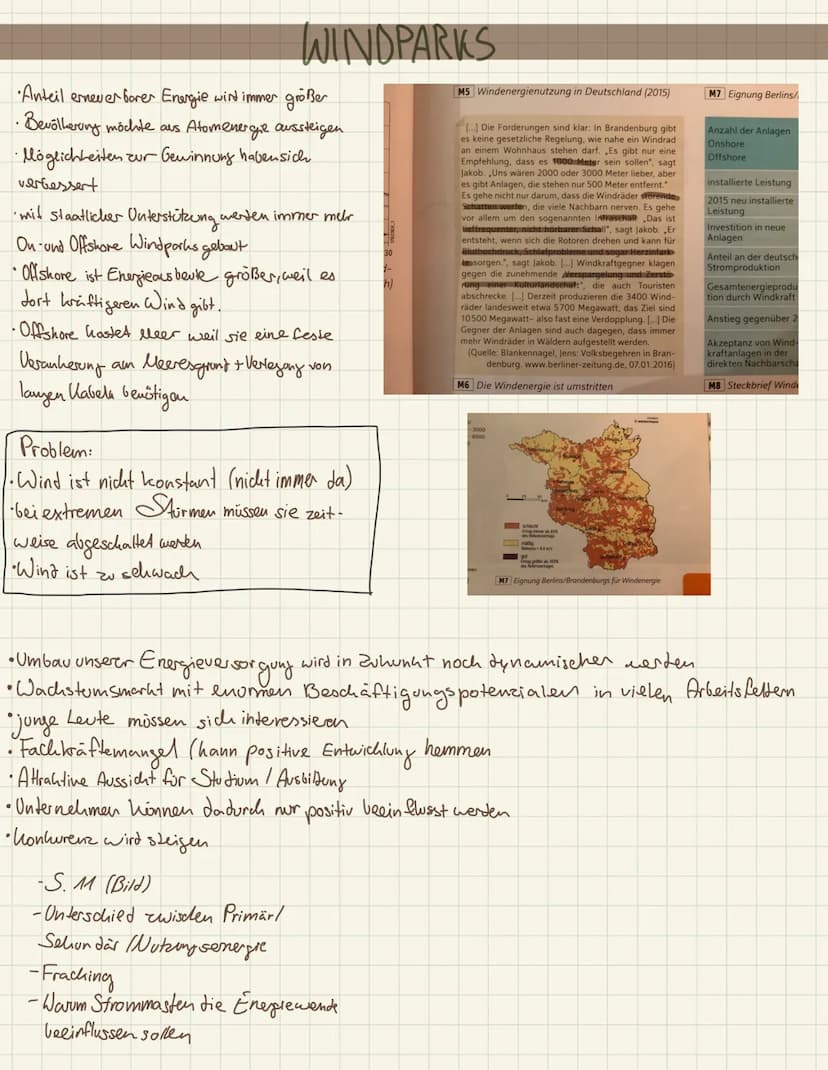 WINDPARKS
·Anteil erneuerbarer Energie wird immer größer
·Bevölkerung möchte aus Atomenergie aussteigen
·Möglichkeiten zur Gewinnung haben sich
verbessert
·mit staatlicher Unterstützung werden immer mehr
On- und Offshore Windparks gebaut
·Offshore ist Energieausbeute größer, weil es
dort kräftigeren Wind gibt.
·Offshore kostet Meer weil sie eine feste
Verankerung am Meeresgrund + Verlegung von
langen Kabeln benötigen
M5 Windenergienutzung in Deutschland (2015)
[...] Die Forderungen sind klar: In Brandenburg gibt
es keine gesetzliche Regelung, wie nahe ein Windrad
an einem Wohnhaus stehen darf. „Es gibt nur eine
Empfehlung, dass es 1000 Meter sein sollen", sagt
Jakob. „Uns wären 2000 oder 3000 Meter lieber, aber
es gibt Anlagen, die stehen nur 500 Meter entfernt."
Es gehe nicht nur darum, dass die Windräder störende
Schatten werfen, die viele Nachbarn nerven. Es gehe
vor allem um den sogenannten Infraschall. „Das ist
tieffrequenter, nicht hörbarer Schall", sagt Jakob. „Er
entsteht, wenn sich die Rotoren drehen und kann für
Bluthochdruck, Schlafprobleme und sogar Herzinfark-
te sorgen.", sagt Jakob. [...] Windkraftgegner klagen
gegen die zunehmende „Verspargelung und Zerstö-
rung einer Kulturlandschaft", die auch Touristen
abschrecke. [...] Derzeit produzieren die 3400 Wind-
räder landesweit etwa 5700 Megawatt, das Ziel sind
10500 Megawatt– also fast eine Verdopplung. [...] Die
Gegner der Anlagen sind auch dagegen, dass immer
mehr Windräder in Wäldern aufgestellt werden.
(Quelle: Blankennagel, Jens: Volksbegehren in Bran-
denburg. www.berliner-zeitung.de, 07.01.2016)
M6 Die Windenergie ist umstritten
M7 Eignung Berlins/
Anzahl der Anlagen
Onshore
Offshore
installierte Leistung
2015 neu installierte
Leistung
Investition in neue
Anlagen
Anteil an der deutsch
Stromproduktion
Gesamtenergieprodu
tion durch Windkraft
Anstieg gegenüber 2
Akzeptanz von Wind-
kraftanlagen in der
direkten Nachbarscha
M8 Steckbrief Wind
Problem:
·Wind ist nicht konstant (nicht immer da)
·bei extremen Stürmen müssen sie zeit-
weise abgeschaltet werden
·Wind ist zu schwach
M7 Eignung Berlins/Brandenburgs für Windenergie
·Umbau unserer Energieversorgung wird in Zukunft noch dynamischer werden
·Wachstumsmarkt mit enormen Beschäftigungspotenzialen in vielen Arbeitsfeldern
·junge Leute müssen sich interessieren
·Fachkräftemangel (kann positive Entwicklung hemmen
·Attraktive Aussicht für Studium / Ausbildung
·Unternehmen können dadurch nur positiv beeinflusst werden
·Konkurenz wird steigen
-S. 11 (Bild)
-Unterschied zwischen Primär/
Sekundär /Nutzungsenergie
-Fracking
-Warum Strommasten die Energiewende
beeinflussen sollen